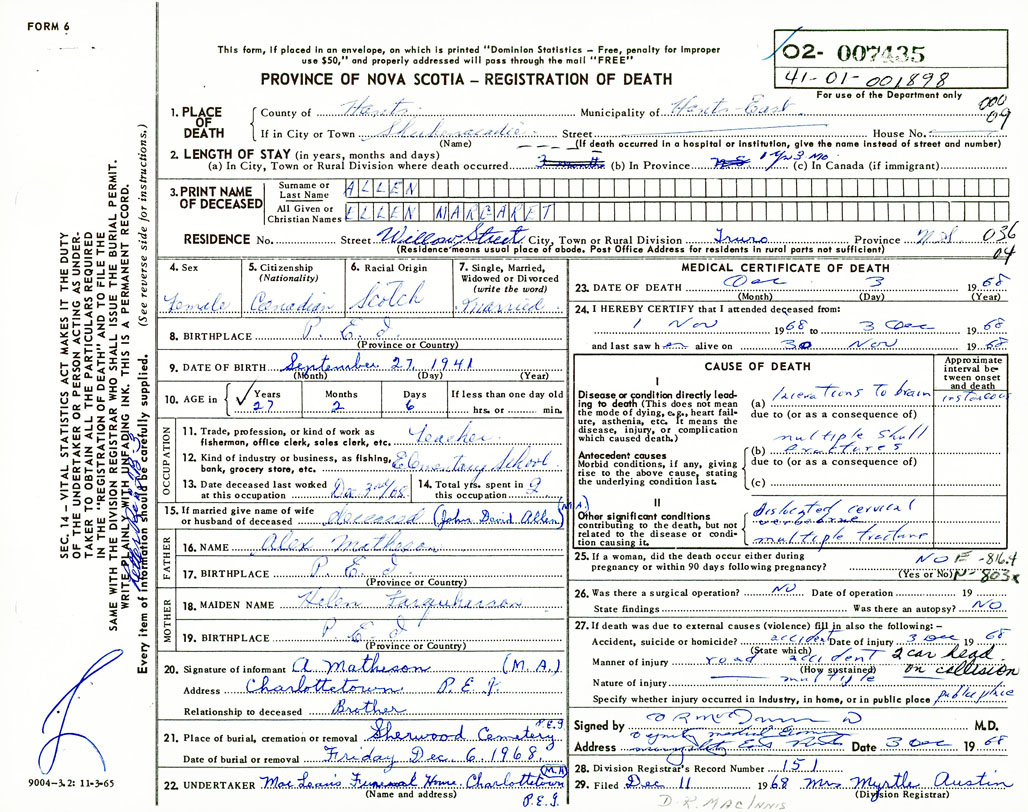 FORM 6
This form, if placed in an envelope, on which is printed "Dominion Statistics – Free, penalty for improper
use $50," and properly addressed will pass through the mail "FREE"
PROVINCE OF NOVA SCOTIA – REGISTRATION OF DEATH
02- 007435
41-01-001898
For use of the Department only
000
09
1. PLACE OF DEATH
County of Hants Municipality of Hants-East
If in City or Town Shubenacadie Street House No.
(Name) (If death occurred in a hospital or institution, give the name instead of street and number)
2. LENGTH OF STAY (in years, months and days)
(a) In City, Town or Rural Division where death occurred (b) In Province 1 yr 3 mo (c) In Canada (if immigrant)
3. PRINT NAME OF DECEASED
Surname or Last Name ALLEN
All Given or Christian Names ELLEN MARGARET
RESIDENCE No. Street Willow Street City, Town or Rural Division Truro Province N.S. 036
(Residence means usual place of abode. Post Office Address for residents in rural parts not sufficient) 04
4. Sex
Female
5. Citizenship (Nationality)
Canadian
6. Racial Origin
Scotch
7. Single, Married, Widowed or Divorced (write the word)
Married
8. BIRTHPLACE P.E.I
(Province or Country)
9. DATE OF BIRTH September 27, 1941
(Month) (Day) (Year)
10. AGE in ✓ Years 27 Months 2 Days 6 If less than one day old
hrs. or min.
OCCUPATION
11. Trade, profession, or kind of work as Teacher
fisherman, office clerk, sales clerk, etc.
12. Kind of industry or business, as fishing, Elementary School
bank, grocery store, etc.
13. Date deceased last worked at this occupation Dec 3rd/68
14. Total yrs. spent in this occupation 9
15. If married give name of wife or husband of deceased deceased (John David Allen) (M.A.)
FATHER
16. NAME Alex Matheson
17. BIRTHPLACE P.E.I
(Province or Country)
MOTHER
18. MAIDEN NAME Helen Farquherson
19. BIRTHPLACE P.E.I
(Province or Country)
20. Signature of informant A Matheson (M.A.)
Address Charlottetown P.E.I.
Relationship to deceased Brother
21. Place of burial, cremation or removal Sherwood Cemetery P.E.I
Date of burial or removal Friday Dec. 6, 1968
22. UNDERTAKER MacLeans Funeral Home, Charlottetown (M.A)
(Name and address) P.E.I.
MEDICAL CERTIFICATE OF DEATH
23. DATE OF DEATH Dec 3 1968
(Month) (Day) (Year)
24. I HEREBY CERTIFY that I attended deceased from:
1 Nov 1968 to 3 Dec 1968
and last saw h er alive on 30 Nov 1968
CAUSE OF DEATH
Approximate interval between onset and death
I
Disease or condition directly leading to death (This does not mean the mode of dying, e.g., heart failure, asthenia, etc. It means the disease, injury, or complication which caused death.)
(a) lacerations to brain
due to (or as a consequence of)
Antecedent causes
Morbid conditions, if any, giving rise to the above cause, stating the underlying condition last.
multiple skull
(b) fractures
due to (or as a consequence of)
(c)
II
Other significant conditions contributing to the death, but not related to the disease or condition causing it.
dislocated cervical
vertebrae
multiple fracture
25. If a woman, did the death occur either during NO E-816.4
pregnancy or within 90 days following pregnancy? (Yes or No) N-803x
26. Was there a surgical operation? NO Date of operation 19
State findings Was there an autopsy? NO
27. If death was due to external causes (violence) fill in also the following: –
Accident, suicide or homicide? accident Date of injury 3 Dec 1968
(State which)
Manner of injury road accident 2 car head on collision
(How sustained)
Nature of injury multiple
Specify whether injury occurred in industry, in home, or in public place public place
Signed by M.D.
Address Date 3 Dec 1968
28. Division Registrar's Record Number 151
29. Filed Dec 11 1968 Mrs Myrtle Austin
(Division Registrar)
D.R. MACINNIS
SEC. 14 – VITAL STATISTICS ACT MAKES IT THE DUTY
OF THE UNDERTAKER OR PERSON ACTING AS UNDER-
TAKER TO OBTAIN ALL THE PARTICULARS REQUIRED
IN THE "REGISTRATION OF DEATH" AND TO FILE THE
SAME WITH THE DIVISION REGISTRAR WHO SHALL ISSUE THE BURIAL PERMIT.
WRITE PLAINLY WITH UNFADING INK. THIS IS A PERMANENT RECORD.
Every item of information should be carefully supplied. (See reverse side for instructions.)
9004-3.2: 11-3-65